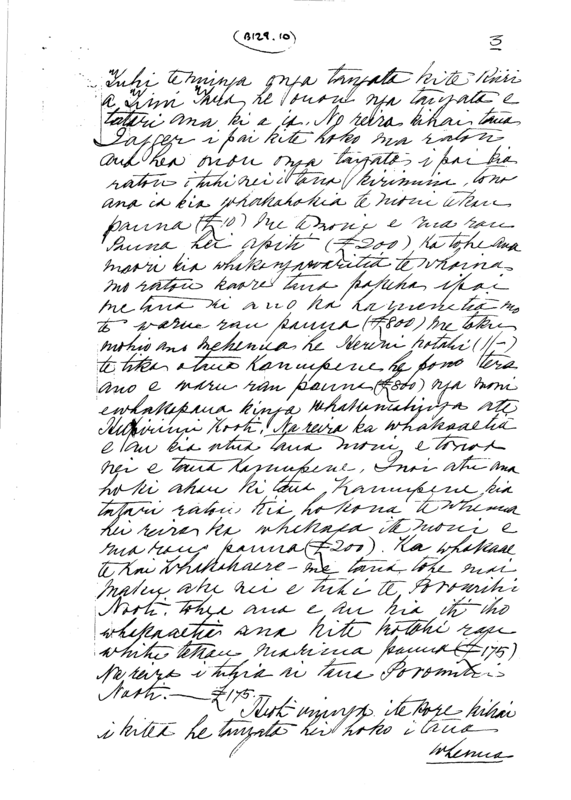 (B129.10)
3
Tuhi te ninga onga tangata kite Kiri
a, he onou nga tangata e
tatari ana ki a ia. No reira kihai taua
i pai kite hoko ma ratou
ana hea onou onga tangata i pai kia
ratou i tuhi nei i tana kirimina, tono
ana ia kia whakahokia te moni tekau
pauna (£10) me te moni e rua rau
Pauna hei apiti (£200) Ka tohe ana
maori kia whakangawaritia te whaina
mo ratou kaore taua pakeha i pai
me taua ki ano ka hamenetia mo
te waru rau pauna (£800) me toku
mohio ano mehemea he Hereni kotahi (1/-)
te tika o taua Kamupene he pono tera
ano e waru rau pauna (£800) nga moni
e whakapaua kinga whakamatunga ate
Hupirimi Kooti. Na reira ka whakaaetia
e au kia utua taua moni e tonoa
nei e taua Kamupene. Inoi atu ana
hoki ahau ki taua Kamupene kia
tatari ratou kia hokona te whenua
hei reira ka whakaea ite moni e
rua rau pauna (£200). Ka whakaae
te Kai Whakahaere - me taua tohe mai
matou ake nei e tuhi te Poromihi
Nooti. tohea ana e au kia iti iho
whakaaetia ana kite kotahi rau
whitu tekau marima pauna (£175)
Na reira i tuhia ai taua Poromihi
Nooti. — £175.
ite kore kihai
i kitea he tangata hei hoko i taua
whenua